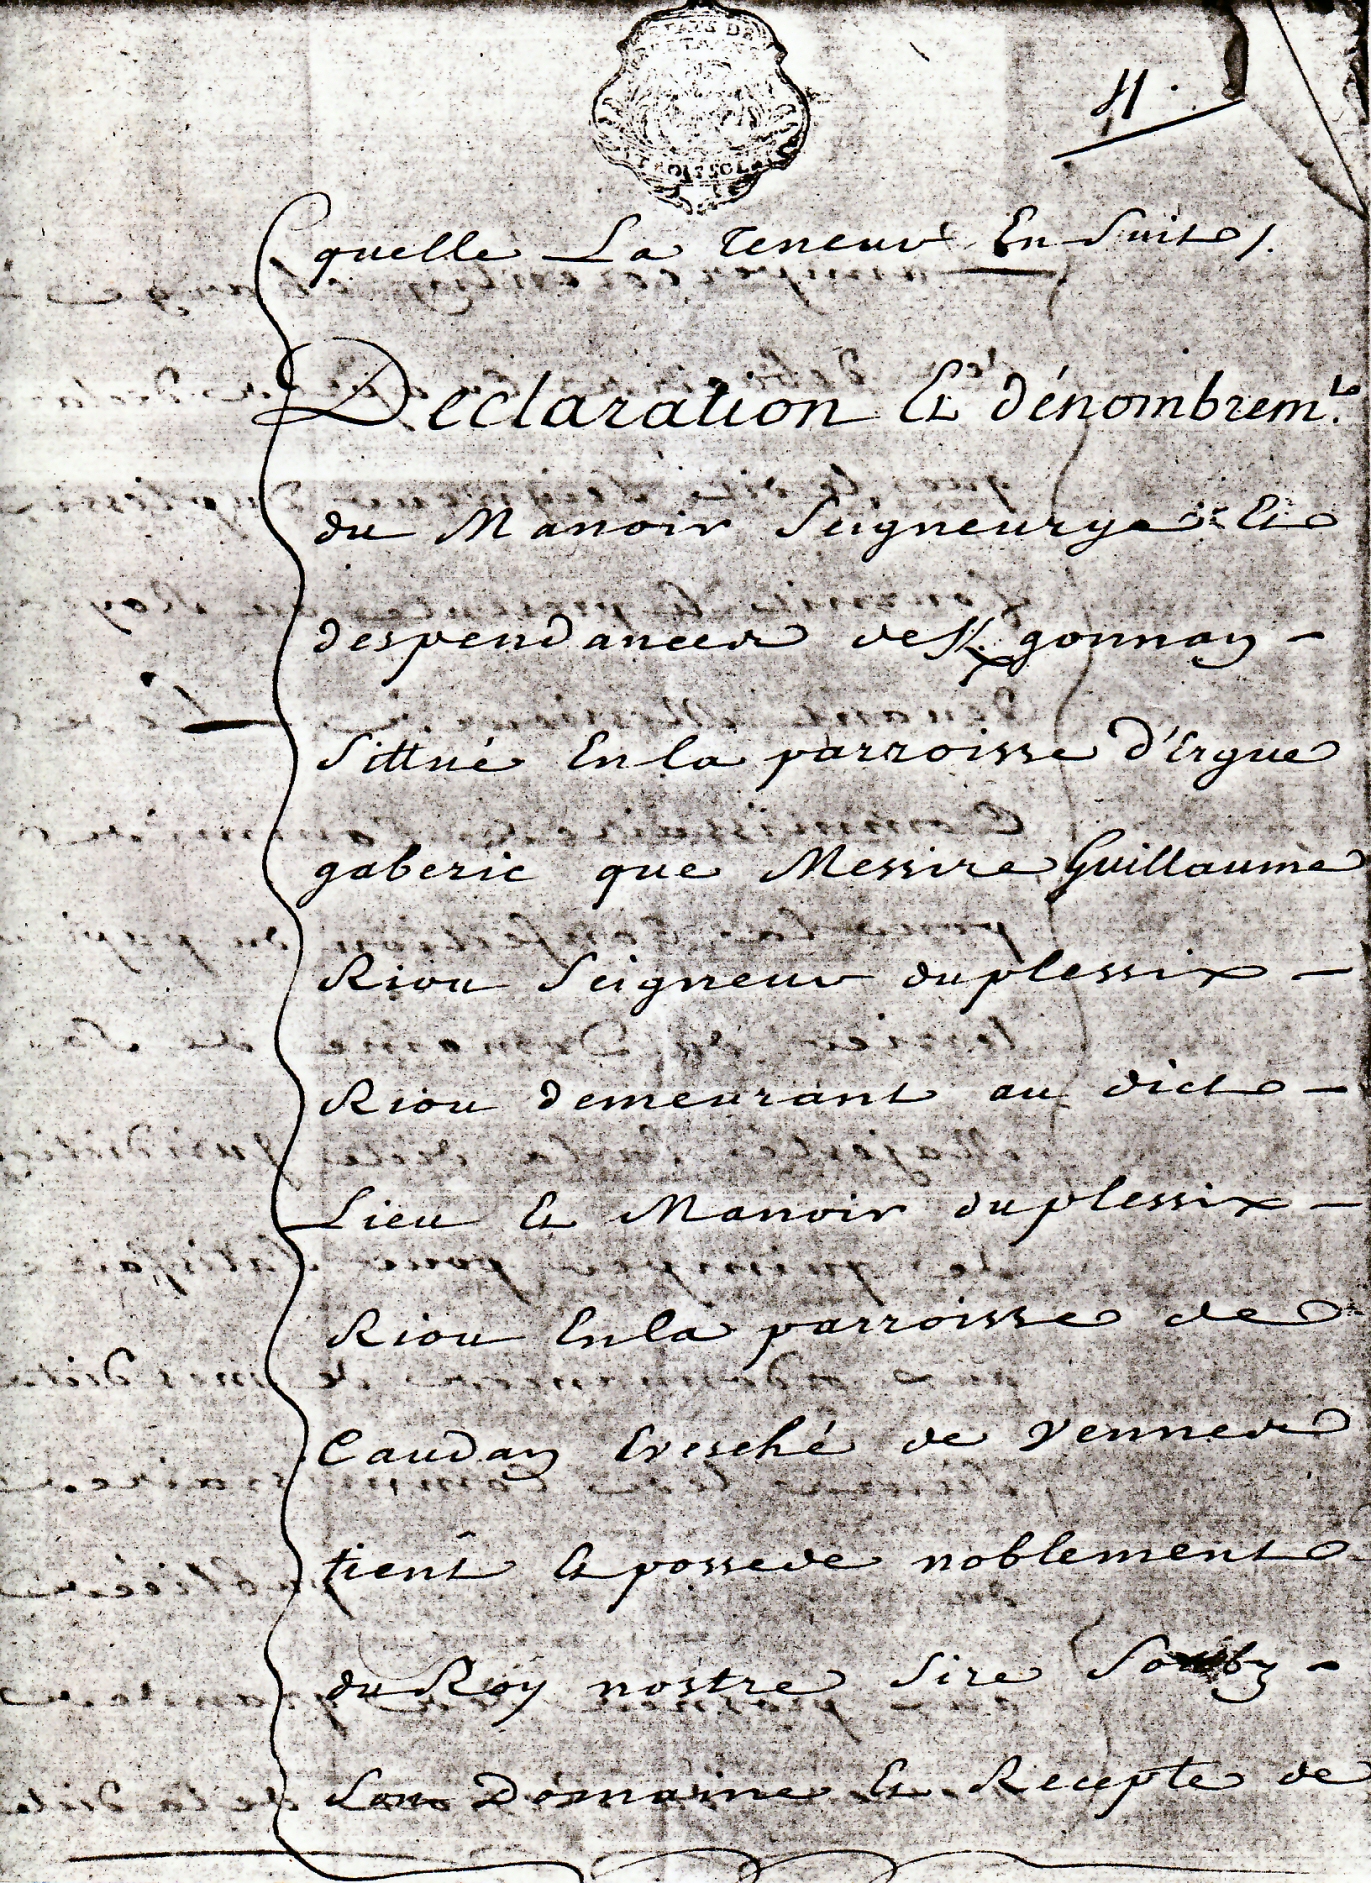 4.
quelle La Teneur En Suit /.
Declaration Et dénombrem.t
du Manoir Seigneurye Et
despendances de K/gonnan -
Sittué En la parroisse d'Ergue
gaberic que Messire Guillaume
Riou Seigneur duplessix -
Riou demeurant au dict -
Lieu Et Manoir duplessix -
Riou En la parroisse de
Caudan Evesché de Vennes
tient Et possede noblement
du Roy nostre Sire Soubz -
Son Domaine Et Recepte de